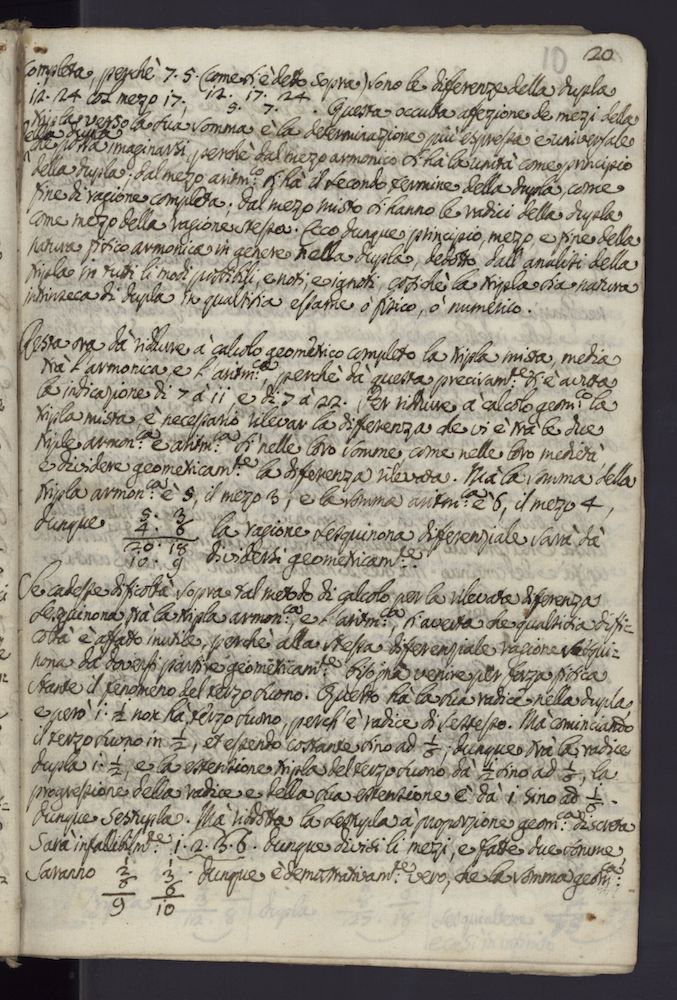 20
completa, perchè 7. 5. (come si è detto sopra) sono le differenze della dupla
12. 24 col mezo 17. 12. 17. 24 Questa occulta affezione de mezi della
5. 7.
tripla verso la sua somma è la determinazione più espressa e universale
della dupla
che possa imaginarsi, perchè dal mezo armonico si ha la unità come principio
della dupla; dal mezo aritm.co si hà il secondo termine della dupla, come
fine di ragione completa; dal mezo misto si hanno le radici della dupla
come mezo della ragione stessa. Ecco dunque principio, mezo, e fine della
natura fisico armonica in genere nella dupla, dedotto dall'analisi della
tripla in tutti li modi possibili, e noti, e ignoti, cosichè la tripla sia natura
intrinseca di dupla in qualsisia essame ò fisico, ò numerico.
Resta ora dà ridurre à calcolo geometrico completo la tripla mista, media
trà l'armonica e l'aritm.ca, perchè dà questa precisam.te si è avuta
la indicazione di 7 à 11, e di 7 à 22. Per ridurre à calcolo geom.co la
tripla mista, è necessario rilevar la differenza che vi è trà le due
triple armon.ca e aritm.ca sì nelle loro somme come nelle loro medietà
e dividere geometricam.te la differenza rilevata. Mà la somma della
tripla armon.ca è 5, il mezo 3, e la somma aritm.ca è 6, il mezo 4,
dunque 5. 3 la ragione sesquinona differenziale sarà dà
4. 6
20. 18 dividersi geometricam.te
10. 9
Se cadesse dificoltà sopra tal metodo di calcolo per la rilevata diferenza
sesquinona trà la tripla armon.ca, e l'aritm.ca, si averta che qualsisia difi-
coltà è affato inutile, perchè alla stessa diferenziale ragione sesqui-
nona da doversi partire geometricam.te bisogna venire per forza fisica
stante il fenomeno del terzo suono. Questo hà la sua radice nella dupla
e però 1. 1/2 non hà terzo suono, perch'è radice di se stesso. Mà cominciando
il terzo suono in 1/2, et essendo costante sino ad 1/6, dunque trà la radice
dupla 1. 1/2, e la estensione tripla del terzo suono dà 1/2 sino ad 1/6, la
progressione della radice e della sua estensione è dà 1 sino ad 1/6.
dunque sestupla. Mà ridotta la sestupla à proporzione geom.ca discreta
sarà infallibilm.te 1. 2. 3. 6. dunque divisi li mezi, e fatte due somme
saranno 1 1 dunque è demostrativam.te vero, che la somma geom.ca
2 3
6 6
9 10